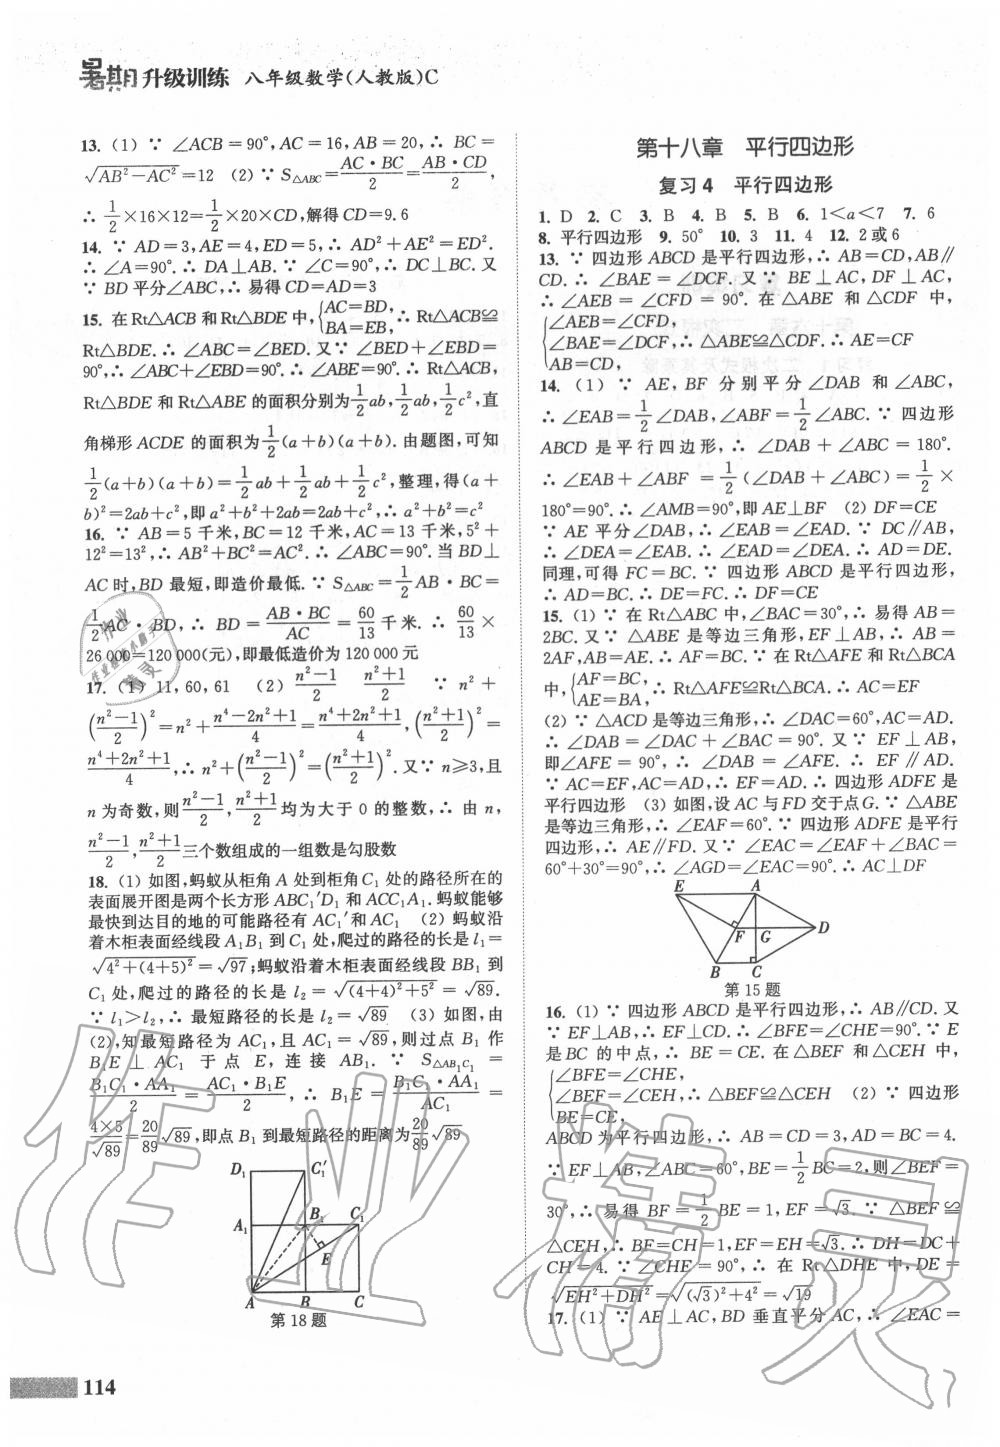 暑期升级训练 八年级数学(人教版)C
13. (1) ∵ ∠ACB = 90°, AC = 16, AB = 20, ∴ BC =
√(AB²−AC²) = 12 (2) ∵ S△ABC = AC·BC/2 = AB·CD/2,
∴ 1/2×16×12=1/2×20×CD,解得CD=9.6
14. ∵ AD=3,AE=4,ED=5,∴ AD²+AE²=ED².
∴ ∠A=90°.∴ DA⊥AB.∵ ∠C=90°,∴ DC⊥BC.又
∵ BD平分∠ABC,∴ 易得CD=AD=3
15. 在Rt△ACB和Rt△BDE中,{AC=BD, BA=EB,∴ Rt△ACB≌
Rt△BDE.∴ ∠ABC=∠BED.又∵ ∠BED+∠EBD=
90°,∴ ∠ABC+∠EBD=90°.∴ ∠ABE=90°.∴ Rt△ACB,
Rt△BDE和Rt△ABE的面积分别为1/2ab,1/2ab,1/2c²,直
角梯形ACDE的面积为1/2(a+b)(a+b).由题图,可知
1/2(a+b)(a+b)=1/2ab+1/2ab+1/2c²,整理,得(a+
b)²=2ab+c²,即a²+b²+2ab=2ab+c²,∴ a²+b²=c²
16. ∵ AB=5千米,BC=12千米,AC=13千米,5²+
12²=13²,∴ AB²+BC²=AC².∴ ∠ABC=90°.当BD⊥
AC时,BD最短,即造价最低.∵ S△ABC=1/2AB·BC=
1/2AC·BD,∴ BD=AB·BC/AC=60/13千米.∴ 60/13×
26 000=120 000(元),即最低造价为120 000元
17. (1) 11,60,61 (2) (n²−1)/2 (n²+1)/2 ∵ n²+
((n²−1)/2)²=n²+(n⁴−2n²+1)/4=(n⁴+2n²+1)/4,((n²+1)/2)²=
(n⁴+2n²+1)/4,∴ n²+((n²−1)/2)²=((n²+1)/2)².又∵ n≥3,且
n为奇数,则(n²−1)/2,(n²+1)/2均为大于0的整数,∴ 由n,
(n²−1)/2,(n²+1)/2三个数组成的一组数是勾股数
18. (1) 如图,蚂蚁从柜角A处到柜角C₁处的路径所在的
表面展开图是两个长方形ABC₁′D₁和ACC₁A₁.蚂蚁能够
最快到达目的地的可能路径有AC₁′和AC₁ (2) 蚂蚁沿
着木柜表面经线段A₁B₁到C₁处,爬过的路径的长是l₁=
√(4²+(4+5)²)=√97;蚂蚁沿着木柜表面经线段BB₁到
C₁处,爬过的路径的长是l₂=√((4+4)²+5²)=√89.
∵ l₁>l₂,∴ 最短路径的长是l₂=√89 (3) 如图,由
(2),知最短路径为AC₁,且AC₁=√89,则过点B₁作
B₁E⊥AC₁于点E,连接AB₁.∵ S△AB₁C₁=
B₁C₁·AA₁/2=AC₁·B₁E/2,∴ B₁E=B₁C₁·AA₁/AC₁=
4×5/√89=20/89√89,即点B₁到最短路径的距离为20/89√89
D₁ C₁′
A₁ B₁ C₁
E
A B C
第18题
第十八章 平行四边形
复习4 平行四边形
1. D 2. C 3. B 4. B 5. B 6. 1<a<7 7. 6
8. 平行四边形 9. 50° 10. 3 11. 4 12. 2或6
13. ∵ 四边形ABCD是平行四边形,∴ AB=CD,AB∥
CD.∴ ∠BAE=∠DCF.又∵ BE⊥AC,DF⊥AC,
∴ ∠AEB=∠CFD=90°.在△ABE和△CDF中,
{∠AEB=∠CFD,
∠BAE=∠DCF,∴ △ABE≌△CDF.∴ AE=CF
AB=CD,
14. (1) ∵ AE,BF分别平分∠DAB和∠ABC,
∴ ∠EAB=1/2∠DAB,∠ABF=1/2∠ABC.∵ 四边形
ABCD是平行四边形,∴ ∠DAB+∠ABC=180°.
∴ ∠EAB+∠ABF=1/2(∠DAB+∠ABC)=1/2×
180°=90°.∴ ∠AMB=90°,即AE⊥BF (2) DF=CE
∵ AE平分∠DAB,∴ ∠EAB=∠EAD.∵ DC∥AB,
∴ ∠DEA=∠EAB.∴ ∠EAD=∠DEA.∴ AD=DE.
同理,可得FC=BC.∵ 四边形ABCD是平行四边形,
∴ AD=BC.∴ DE=FC.∴ DF=CE
15. (1) ∵ 在Rt△ABC中,∠BAC=30°,∴ 易得AB=
2BC.又∵ △ABE是等边三角形,EF⊥AB,∴ AB=
2AF,AB=AE.∴ AF=BC.在Rt△AFE和Rt△BCA
中,{AF=BC, AE=BA,∴ Rt△AFE≌Rt△BCA.∴ AC=EF
(2) ∵ △ACD是等边三角形,∴ ∠DAC=60°,AC=AD.
∴ ∠DAB=∠DAC+∠BAC=90°.又∵ EF⊥AB,
即∠AFE=90°,∴ ∠DAB=∠AFE.∴ EF∥AD.
∵ AC=EF,AC=AD,∴ EF=AD.∴ 四边形ADFE是
平行四边形 (3) 如图,设AC与FD交于点G.∵ △ABE
是等边三角形,∴ ∠EAF=60°.∵ 四边形ADFE是平行
四边形,∴ AE∥FD.又∵ ∠EAC=∠EAF+∠BAC=
60°+30°=90°,∴ ∠AGD=∠EAC=90°.∴ AC⊥DF
E A
F G D
B C
第15题
16. (1) ∵ 四边形ABCD是平行四边形,∴ AB∥CD.又
∵ EF⊥AB,∴ EF⊥CD.∴ ∠BFE=∠CHE=90°.∵ E
是BC的中点,∴ BE=CE.在△BEF和△CEH中,
{∠BFE=∠CHE,
∠BEF=∠CEH,∴ △BEF≌△CEH (2) ∵ 四边形
BE=CE,
ABCD为平行四边形,∴ AB=CD=3,AD=BC=4.
∵ EF⊥AB,∠ABC=60°,BE=1/2BC=2,则∠BEF=
30°,∴ 易得BF=1/2BE=1,EF=√3.∵ △BEF≌
△CEH,∴ BF=CH=1,EF=EH=√3.∴ DH=DC+
CH=4.∵ ∠CHE=90°,∴ 在Rt△DHE中,DE=
√(EH²+DH²)=√((√3)²+4²)=√19
17. (1) ∵ AE⊥AC,BD垂直平分AC,∴ ∠EAC=
114
作业精灵